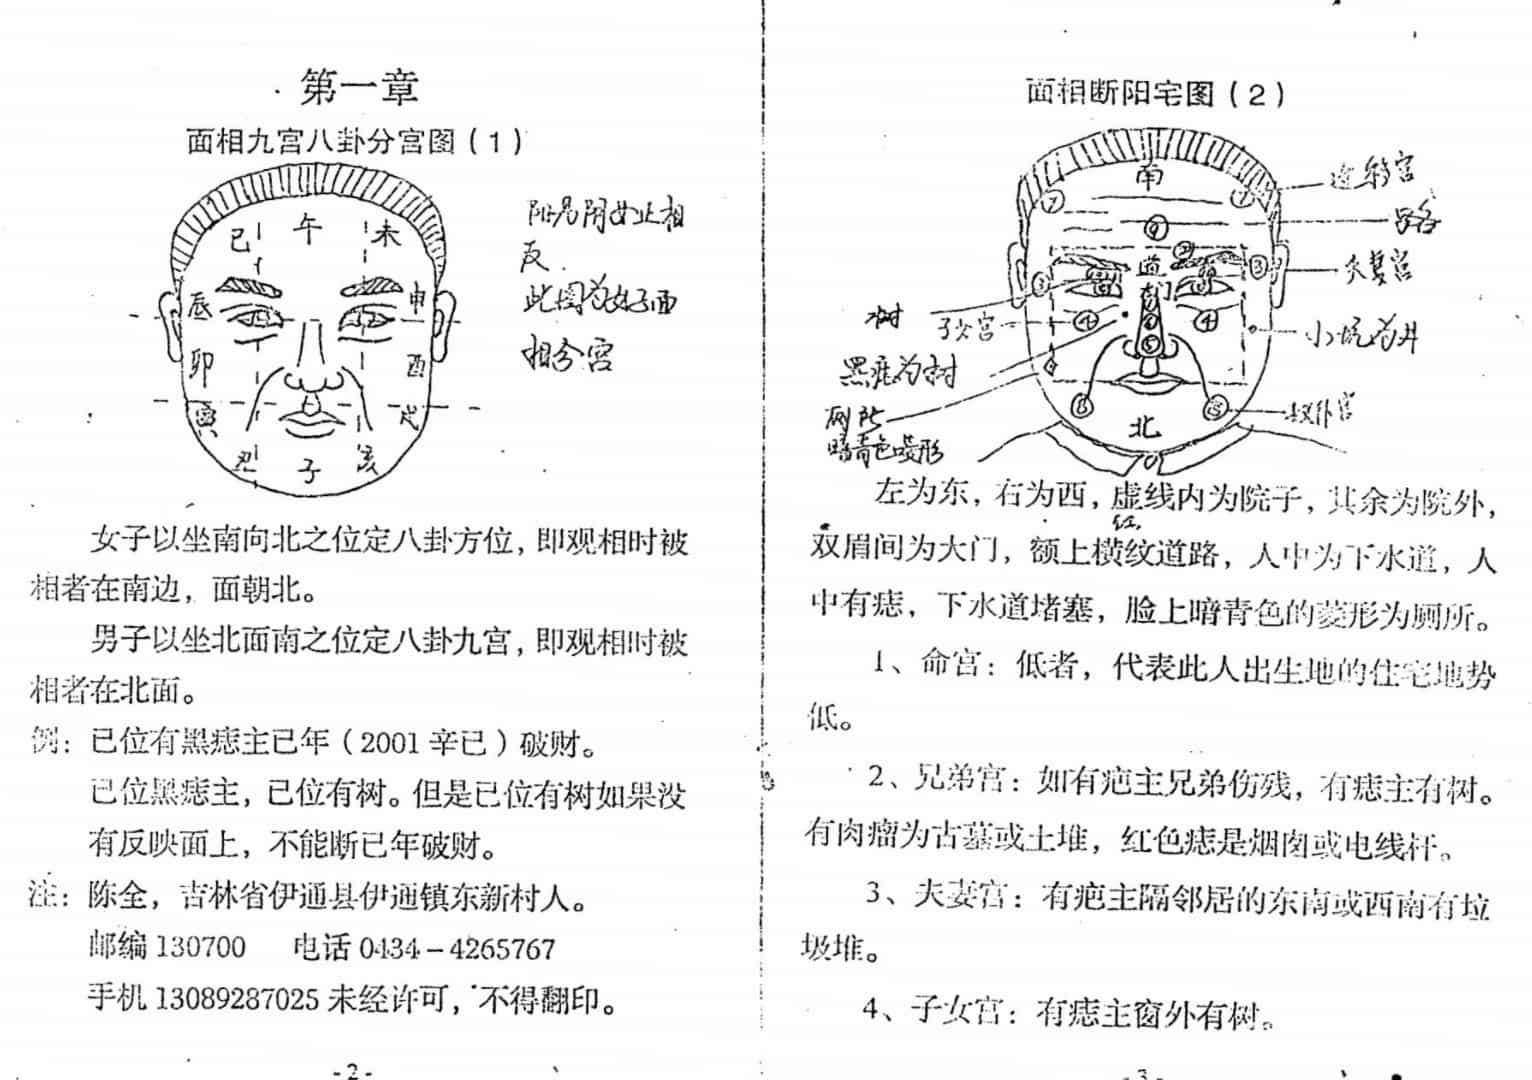 第一章
面相九宫八卦分宫图（1）
午
巳
未
辰
申
卯
酉
寅
戌
丑
亥
子
阳局阴女止相
反.
此图为女子面
相分宫
女子以坐南向北之位定八卦方位，即观相时被
相者在南边，面朝北。
男子以坐北面南之位定八卦九宫，即观相时被
相者在北面。
例：巳位有黑痣主巳年（2001 辛巳）破财。
巳位黑痣主，巳位有树。但是巳位有树如果没
有反映面上，不能断巳年破财。
注：陈全，吉林省伊通县伊通镇东新村人。
邮编 130700 电话 0434－4265767
手机 13089287025 未经许可，不得翻印。
-2-
面相断阳宅图（2）
南
道
门
北
道路
夫妻宫
小坑为井
树
子女宫
黑痣为树
厕所
暗青色菱形
左为东，右为西，虚线内为院子，其余为院外，
红
双眉间为大门，额上横纹道路，人中为下水道，人
中有痣，下水道堵塞，脸上暗青色的菱形为厕所。
1、命宫：低者，代表此人出生地的住宅地势
低。
2、兄弟宫：如有疤主兄弟伤残，有痣主有树。
有肉瘤为古墓或土堆，红色痣是烟囱或电线杆。
3、夫妻宫：有疤主隔邻居的东南或西南有垃
圾堆。
4、子女宫：有痣主窗外有树。
-3-